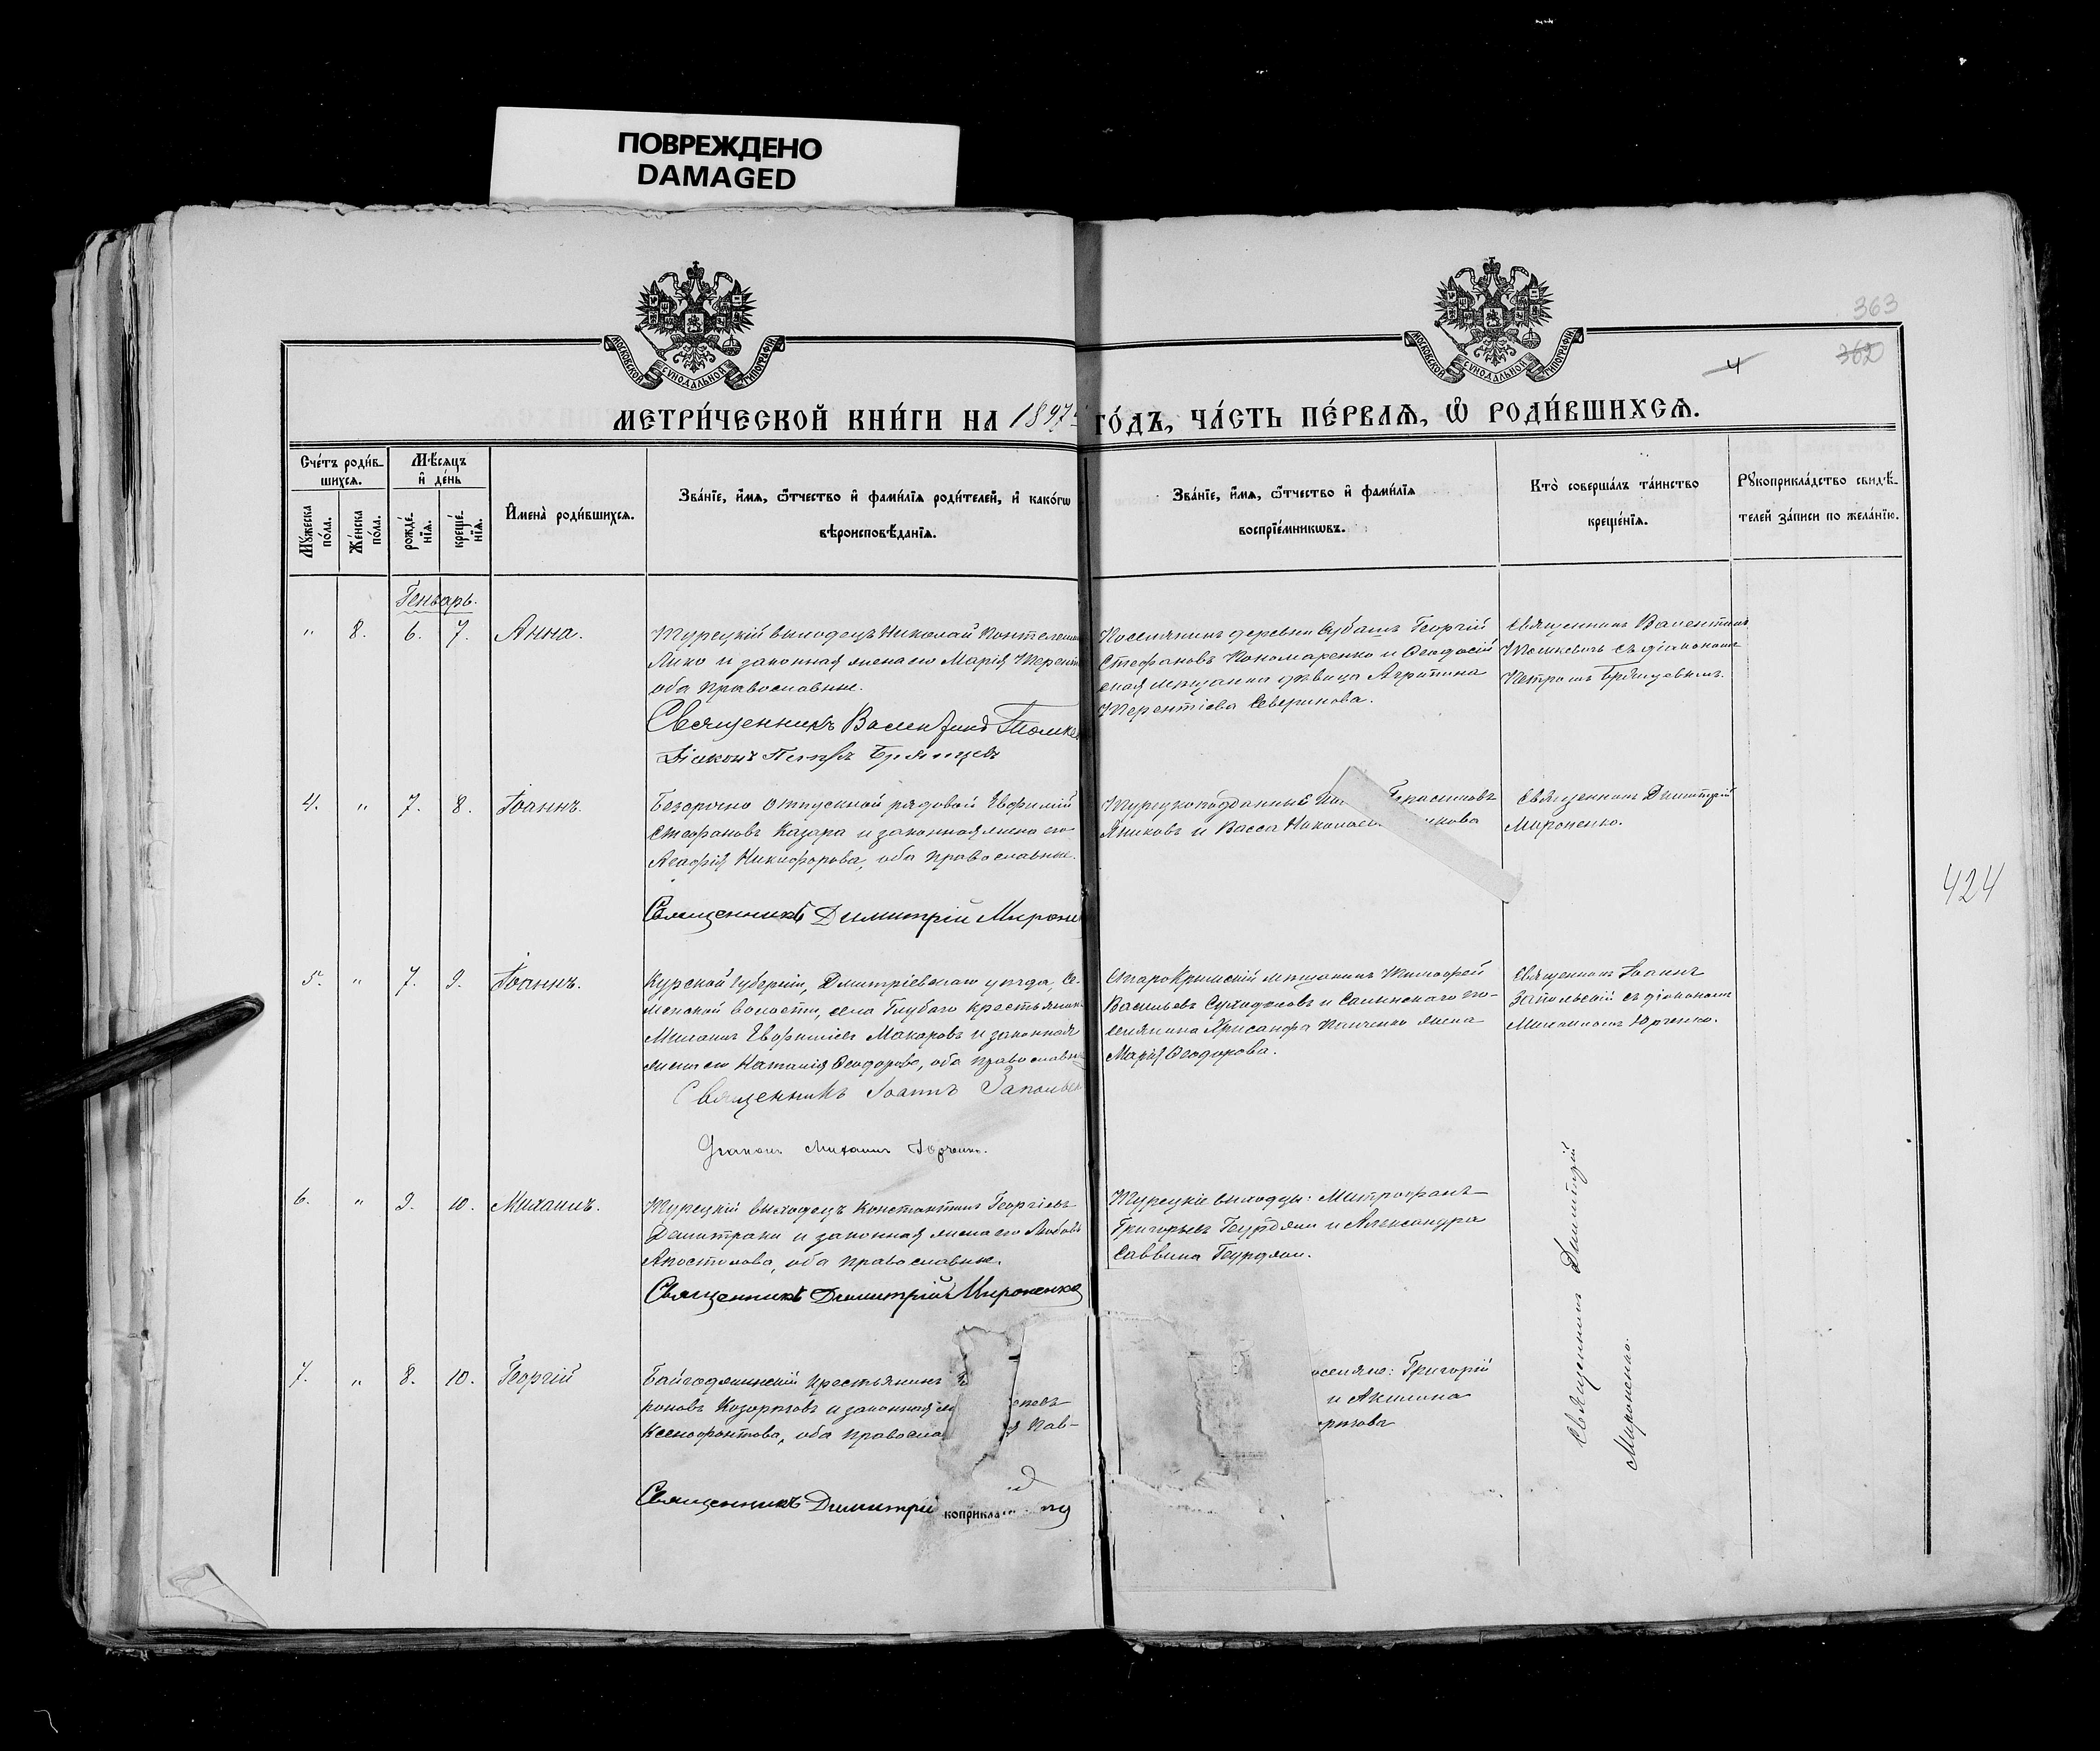 ПОВРЕЖДЕНО
DAMAGED
363
362
4
МОСКОВСКОЙ СѴНОДАЛЬНОЙ ТИПОГРАФІИ
МОСКОВСКОЙ СѴНОДАЛЬНОЙ ТИПОГРАФІИ
МЕТРИ́ЧЕСКОЙ КНИ́ГИ НА 1897 ГО́ДЪ, ЧА́СТЬ ПЕ́РВАѦ, Ѡ҆ РОДИ́ВШИХСѦ.
Сче́тъ роди́в-
шихсѧ.
Мꙋ́жеска по́ла.
Же́нска по́ла.
Мѣ́сѧцъ
и҆ де́нь
рожде́-нїѧ.
креще́-нїѧ.
И҆мена̀ роди́вшихсѧ.
Зва́нїе, и҆́мѧ, ѻ҆́тчество и҆ фами́лїѧ роди́телей, и҆ како́гѡ
вѣроисповѣ́данїѧ.
Зва́нїе, и҆́мѧ, ѻ҆́тчество и҆ фами́лїѧ
воспрїе́мникѡвъ.
Кто̀ соверша́лъ та́инство
креще́нїѧ.
Рꙋкоприкла́дство свидѣ́-
телей за́писи по жела́нїю.
Генварь.
" 8. 6. 7. Анна.
Турецкій выходецъ Николай
и законная жена его Марія
оба православные.
Священникъ Валентинъ
Діаконъ Петръ Брянцевъ
Поселянинъ деревни Субашъ Георгій
Стефановъ Пономаренко и Ѳеодосій
ская мѣщанка дѣвица Агрипина
Терентіева Северинова.
Священникъ Валентинъ
съ діакономъ
Петромъ Брянцевымъ.
4. " 7. 8. Іоаннъ.
Безсрочно отпускной рядовой Евфимій
Стефановъ Казара и законная жена его
Агафія Никифорова, оба православные.
Священникъ Димитрій Мироне
Турецкоподданные Герасимовъ
Яниковъ и Васса
Священникъ Димитрій
Мироненко.
424
5. " 7. 9. Іоаннъ.
Курской губерніи, Дмитріевскаго уѣзда,
волости, села Глубаго крестьянинъ
Михаилъ Евфиміевъ Макаровъ и законная
жена его Наталія Ѳеодорова, оба православные
Священникъ Іоаннъ Запольск
Діаконъ Михаилъ Юрченко.
Старокрымскій мѣщанинъ Тимофей
Васильевъ и Салынскаго по-
селянина Хрисанфа Панченко жена
Марія Ѳеодорова.
Священникъ Іоаннъ
Запольскій съ діакономъ
Михаиломъ Юрченко.
6. " 9. 10. Михаилъ.
Турецкій выходецъ Константинъ Георгіевъ
Демитраки и законная жена его Любовь
Апостолова, оба православные.
Священникъ Димитрій Мироненко
Турецкіе выходцы: Митрофанъ
Григорьевъ Геурджи и Александра
Саввина Геурджи.
Священникъ Димитрій
Мироненко.
7. " 8. 10. Георгій
крестьянинъ
роновъ Козорѣзовъ и законная
Ксенофонтова, оба правосла Пав-
Священникъ Димитрі
коприкла
оселяне: Григорій
и Акилина
орѣзова